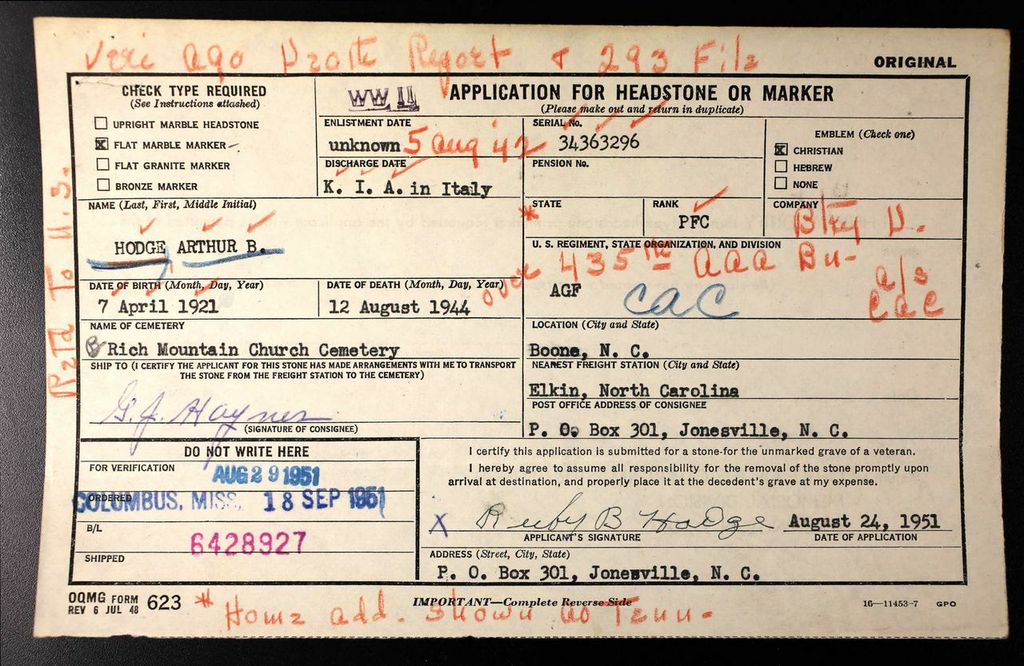 Veri AGO Death Report & 293 File
ORIGINAL
CHECK TYPE REQUIRED
(See Instructions attached)
UPRIGHT MARBLE HEADSTONE
FLAT MARBLE MARKER
FLAT GRANITE MARKER
BRONZE MARKER
WW II
APPLICATION FOR HEADSTONE OR MARKER
(Please make out and return in duplicate)
ENLISTMENT DATE
unknown 5 Aug '42
SERIAL No.
34363296
EMBLEM (Check one)
CHRISTIAN
HEBREW
NONE
DISCHARGE DATE
K. I. A. in Italy
PENSION No.
NAME (Last, First, Middle Initial)
HODGE ARTHUR B.
STATE
*
RANK
PFC
COMPANY
Btry D.
U. S. REGIMENT, STATE ORGANIZATION, AND DIVISION
over 435th AAA Bn-
AGF
CAC
a/s
CAC
Retd To U.S.
DATE OF BIRTH (Month, Day, Year)
7 April 1921
DATE OF DEATH (Month, Day, Year)
12 August 1944
NAME OF CEMETERY
Rich Mountain Church Cemetery
LOCATION (City and State)
Boone, N. C.
SHIP TO (I CERTIFY THE APPLICANT FOR THIS STONE HAS MADE ARRANGEMENTS WITH ME TO TRANSPORT
THE STONE FROM THE FREIGHT STATION TO THE CEMETERY)
G. J. Haynes
(SIGNATURE OF CONSIGNEE)
NEAREST FREIGHT STATION (City and State)
Elkin, North Carolina
POST OFFICE ADDRESS OF CONSIGNEE
P. O. Box 301, Jonesville, N. C.
DO NOT WRITE HERE
FOR VERIFICATION
AUG 29 1951
ORDERED
COLUMBUS, MISS. 18 SEP 1951
B/L
6428927
SHIPPED
I certify this application is submitted for a stone for the unmarked grave of a veteran.
I hereby agree to assume all responsibility for the removal of the stone promptly upon
arrival at destination, and properly place it at the decedent's grave at my expense.
X Ruby B Hodge August 24, 1951
APPLICANT'S SIGNATURE
DATE OF APPLICATION
ADDRESS (Street, City, State)
P. O. Box 301, Jonesville, N. C.
OQMG FORM
REV 6 JUL 48 623
IMPORTANT—Complete Reverse Side
16—11453-7 GPO
* Home add. shown as Tenn-